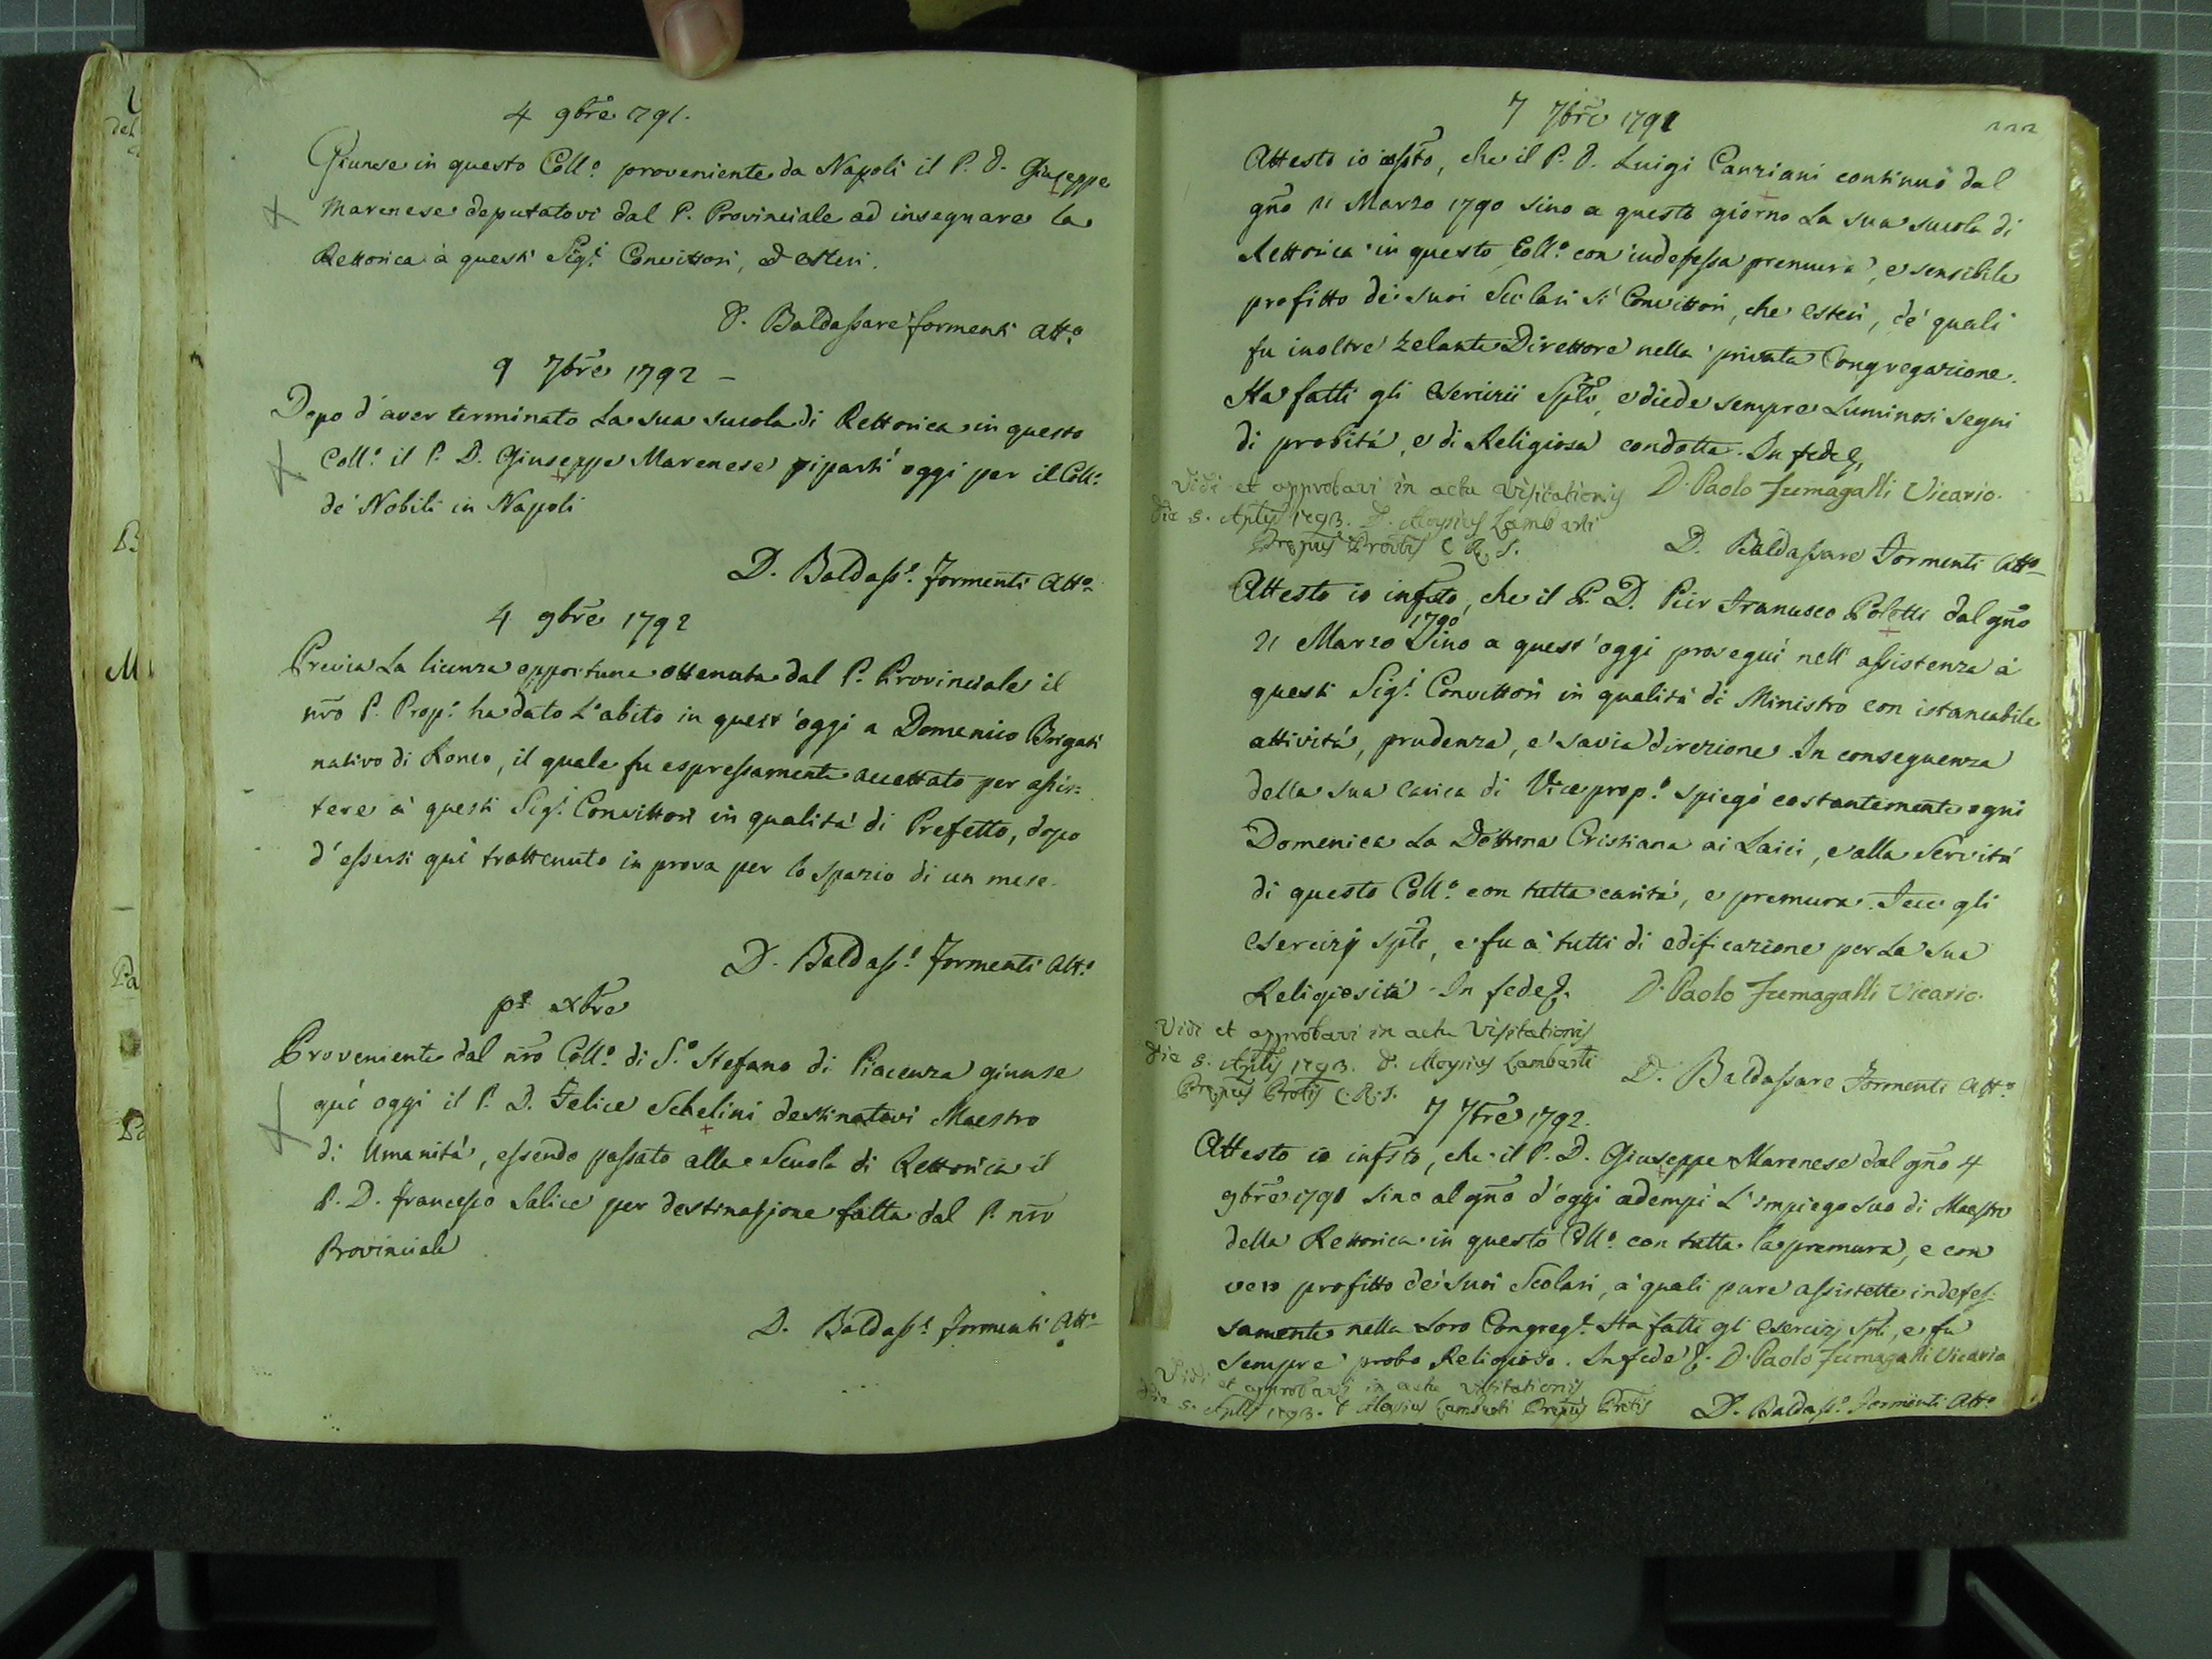 4 9bre 1791.
Giunse in questo Coll.o proveniente da Napoli il P. D. Giuseppe
Marenese deputatovi dal P. Provinciale ad insegnare la
Rettorica à questi Sig.i Convittori, ed esteri.
D. Baldassare formenti Att.o
9 7bre 1792 -
Dopo d'aver terminato La sua scuola di Rettorica in questo
Coll.o il P. D. Giuseppe Marenese ripartì oggi per il Coll.o
de' Nobili in Napoli
D. Baldass.e formenti Att.o
4 9bre 1792
Previa La licenza opportuna ottenuta dal P. Provinciale il
nro P. Prop.o ha dato L'abito in quest'oggi a Domenico Brigati
nativo di Ronco, il quale fu espressamente accettato per assis=
tere à questi Sig.i Convittori in qualità di Prefetto, dopo
d'essersi quì trattenuto in prova per lo spazio di un mese.
D. Baldass.e formenti Att.o
p.o xbre
Proveniente dal nro Coll.o di S.o Stefano di Piacenza giunse
quì oggi il P. D. Felice Schelini destinatovi Maestro
di Umanità, essendo passato alla Scuola di Rettorica il
P. D. francesco Salice per destinazione fatta dal P. nro
Provinciale
D. Baldass.e formenti Att.o
7 7bre 1791
111
Attesto io infsto, che il P. D. Luigi Canziani continuò dal
gno 21 Marzo 1790 sino a questo giorno La sua scuola di
Rettorica in questo Coll.o con indefessa premura, e sensibile
profitto de' suoi Scolari sì Convittori, che esteri, de' quali
fu inoltre zelante Direttore nella privata Congregazione.
Ha fatti gli esercizii Splì, e diede sempre Luminosi segni
di probità, e di Religiosa condotta. In fede &
Vidi et approbavi in actu Visitationis D. Paolo Fumagalli Vicario.
die 5. Aplis 1793. D. Aloysius Lamberti
Prepus Provlis C. R. S.
D. Baldassare Formenti Att.o
Attesto io infsto, che il P. D. Pier Francesco Poletti dal gno
21 Marzo 1790 Sino a quest'oggi proseguì nell'assistenza à
questi Sig.i Convittori in qualità di Ministro con istancabile
attività, prudenza, e savia direzione. In conseguenza
della sua Carica di Viceprop.o spiegò costantemente ogni
Domenica La Dottrina Cristiana ai Laici, e alla Servitù
di questo Coll.o con tutta carità, e premura. Fece gli
esercizj splì, e fu à tutti di edificazione per La sua
Religiosità. In fede &. D. Paolo Fumagalli Vicario.
Vidi et approbavi in actu Visitationis
die 5. Aplis 1793. D. Aloysius Lamberti
Prepus Provlis C. R. S.
D. Baldassare Formenti Att.o
7 7bre 1792.
Attesto io infsto, che il P. D. Giuseppe Marenese dal gno 4
9bre 1791 sino al gno d'oggi adempì L'impiego suo di Maestro
della Rettorica in questo Coll.o con tutta la premura, e con
vero profitto de' suoi Scolari, a' quali pure assistette indefes=
samente nella Loro Congreg.e Ha fatti gl'esercizj Splì, e fu
sempre probo Religioso. In fede &. D. Paolo Fumagalli Vicario
Vidi et approbavi in actu visitationis
die 5. Aplis 1793. D. Aloysius Lamberti Prepus Provlis
D. Baldass.e Formenti Att.o